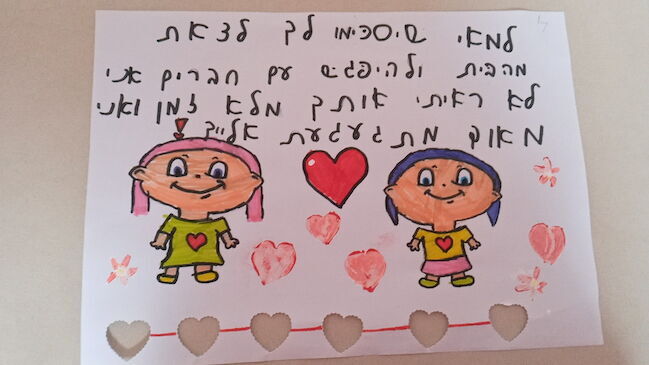 למאי שיסכימו לך לצאת
מהבית ולהיפגש עם חברים אני
לא ראיתי אותך מלא זמן ואני
מאוד מתגעגעת אלייך